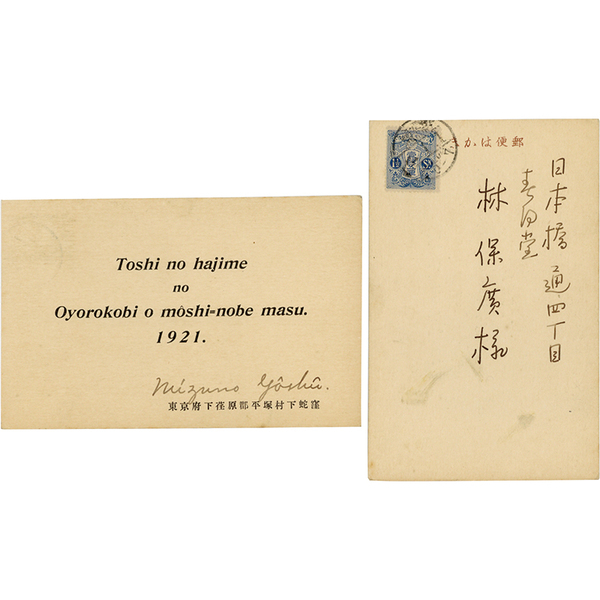 Toshi no hajime
no
Oyorokobi o môshi=nobe masu.
1921.
Mizuno Yôshû.
東京府下荏原郡平塚村下蛇窪
郵便はか
1½ Sn
日本橋通四丁目
春陽堂
林保廣様